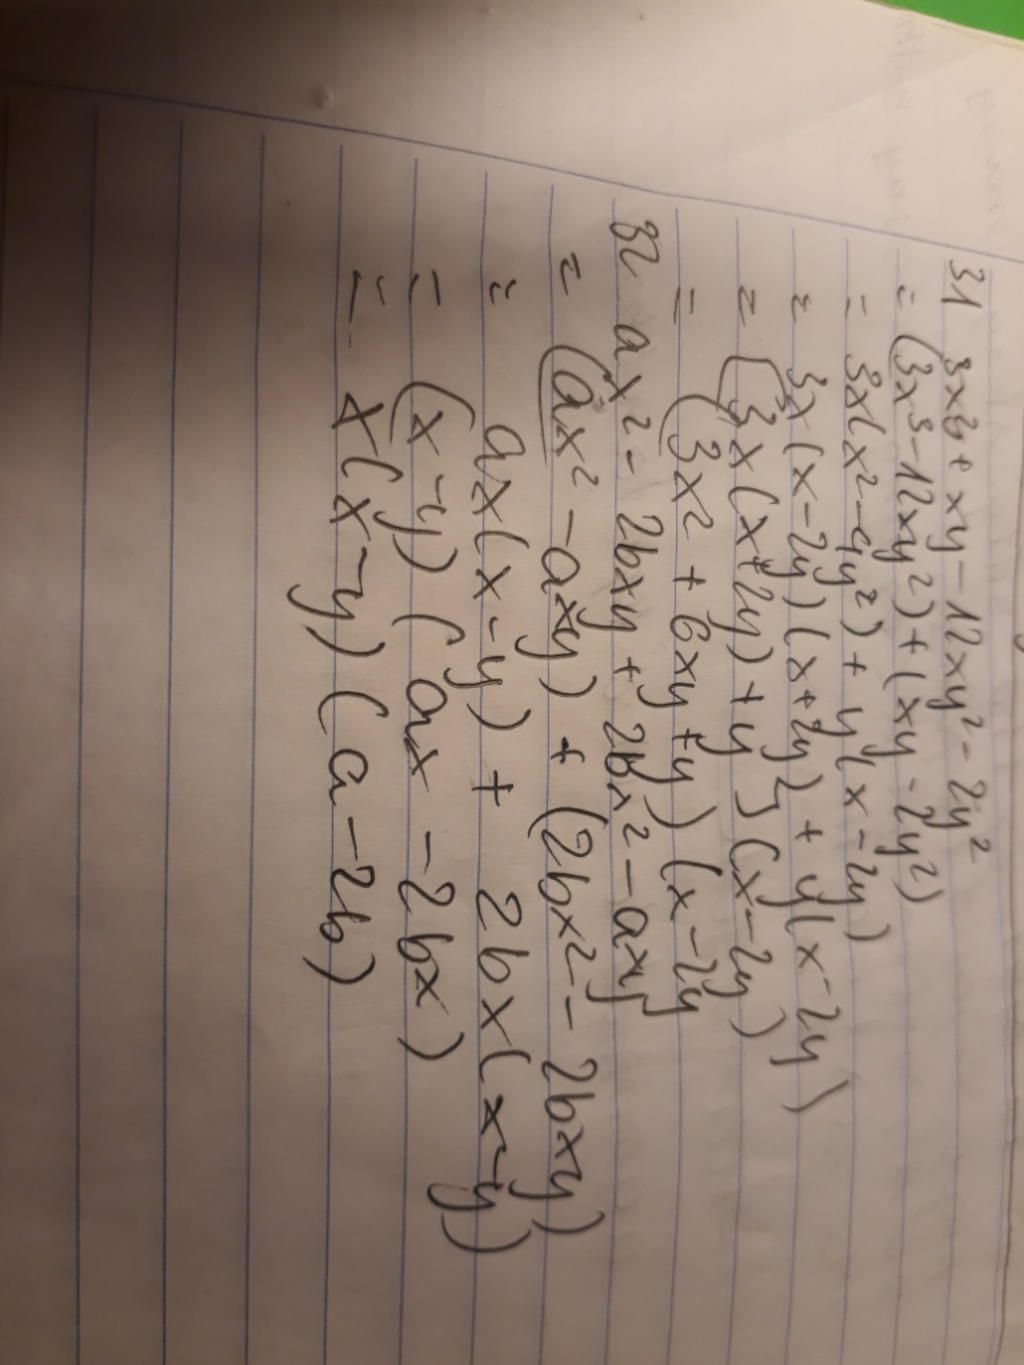 31 3x³ + xy - 12xy² - 2y²
= (3x³ - 12xy²) + (xy - 2y²)
= 3x(x² - 4y²) + y(x - 2y)
= 3x(x - 2y)(x + 2y) + y(x - 2y)
= [3x(x + 2y) + y](x - 2y)
= (3x² + 6xy + y)(x - 2y
32 ax² - 2bxy + 2bx² - axy
= (ax² - axy) + (2bx² - 2bxy)
= ax(x - y) + 2bx(x - y)
= (x - y)(ax - 2bx)
= x(x - y)(a - 2b)